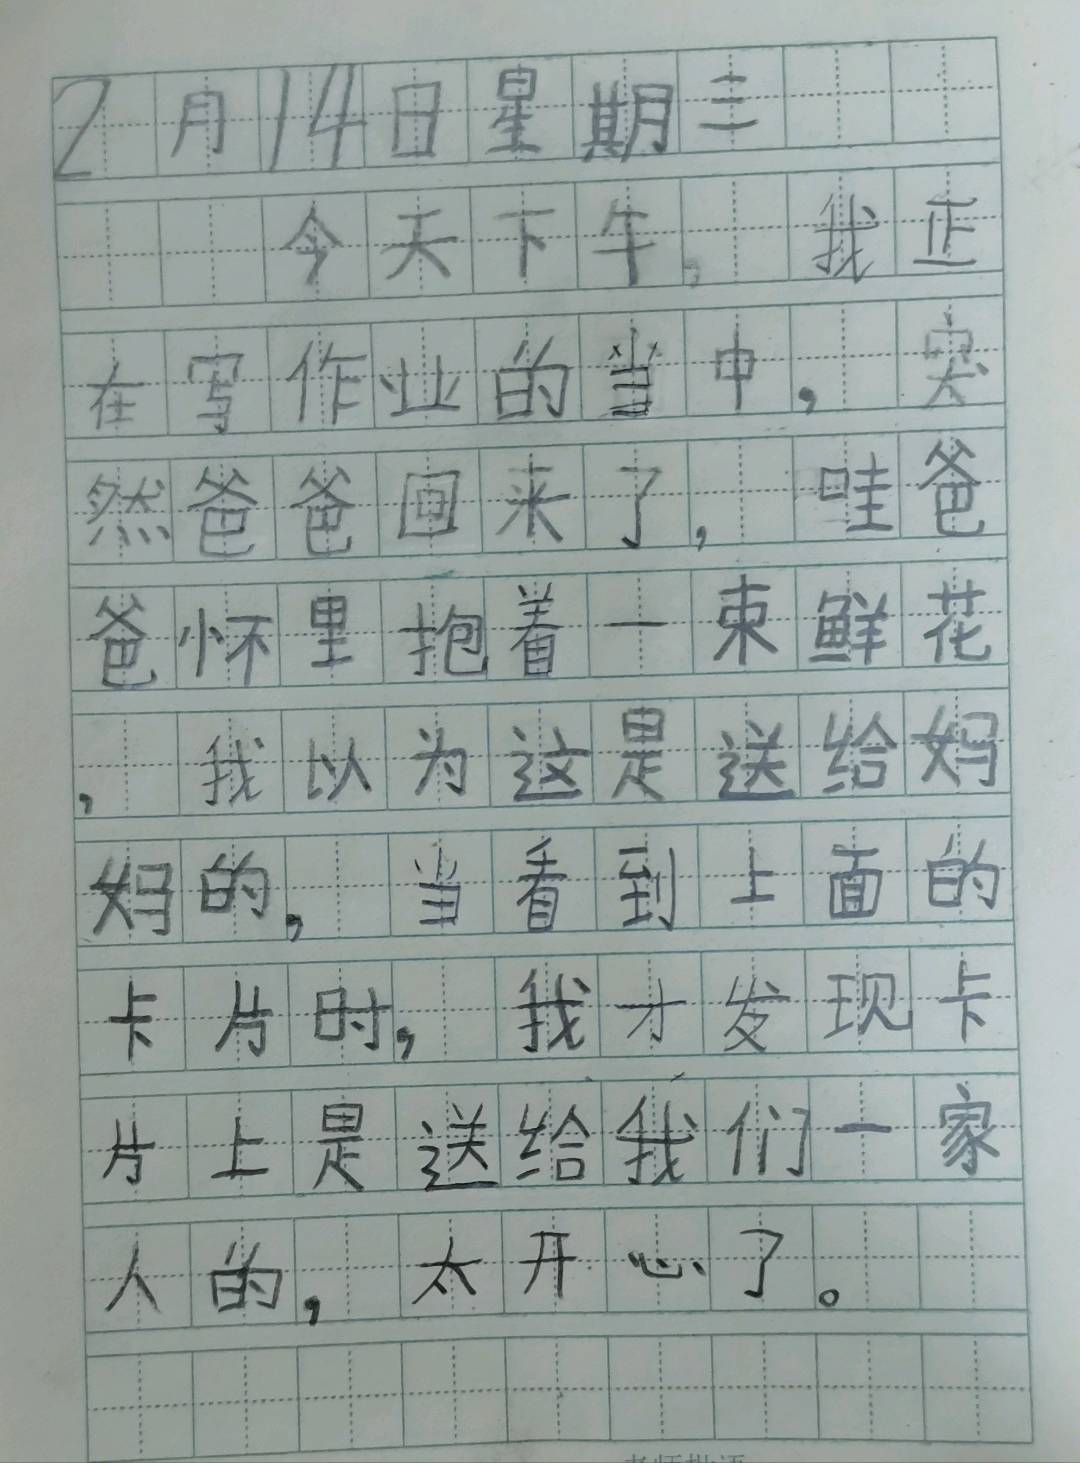 2月14日星期三
今天下午,我正
在写作业的当中,突
然爸爸回来了,哇爸
爸怀里抱着一束鲜花
,我以为这是送给妈
妈的,当看到上面的
卡片时,我才发现卡
片上是送给我们一家
人的,太开心了。